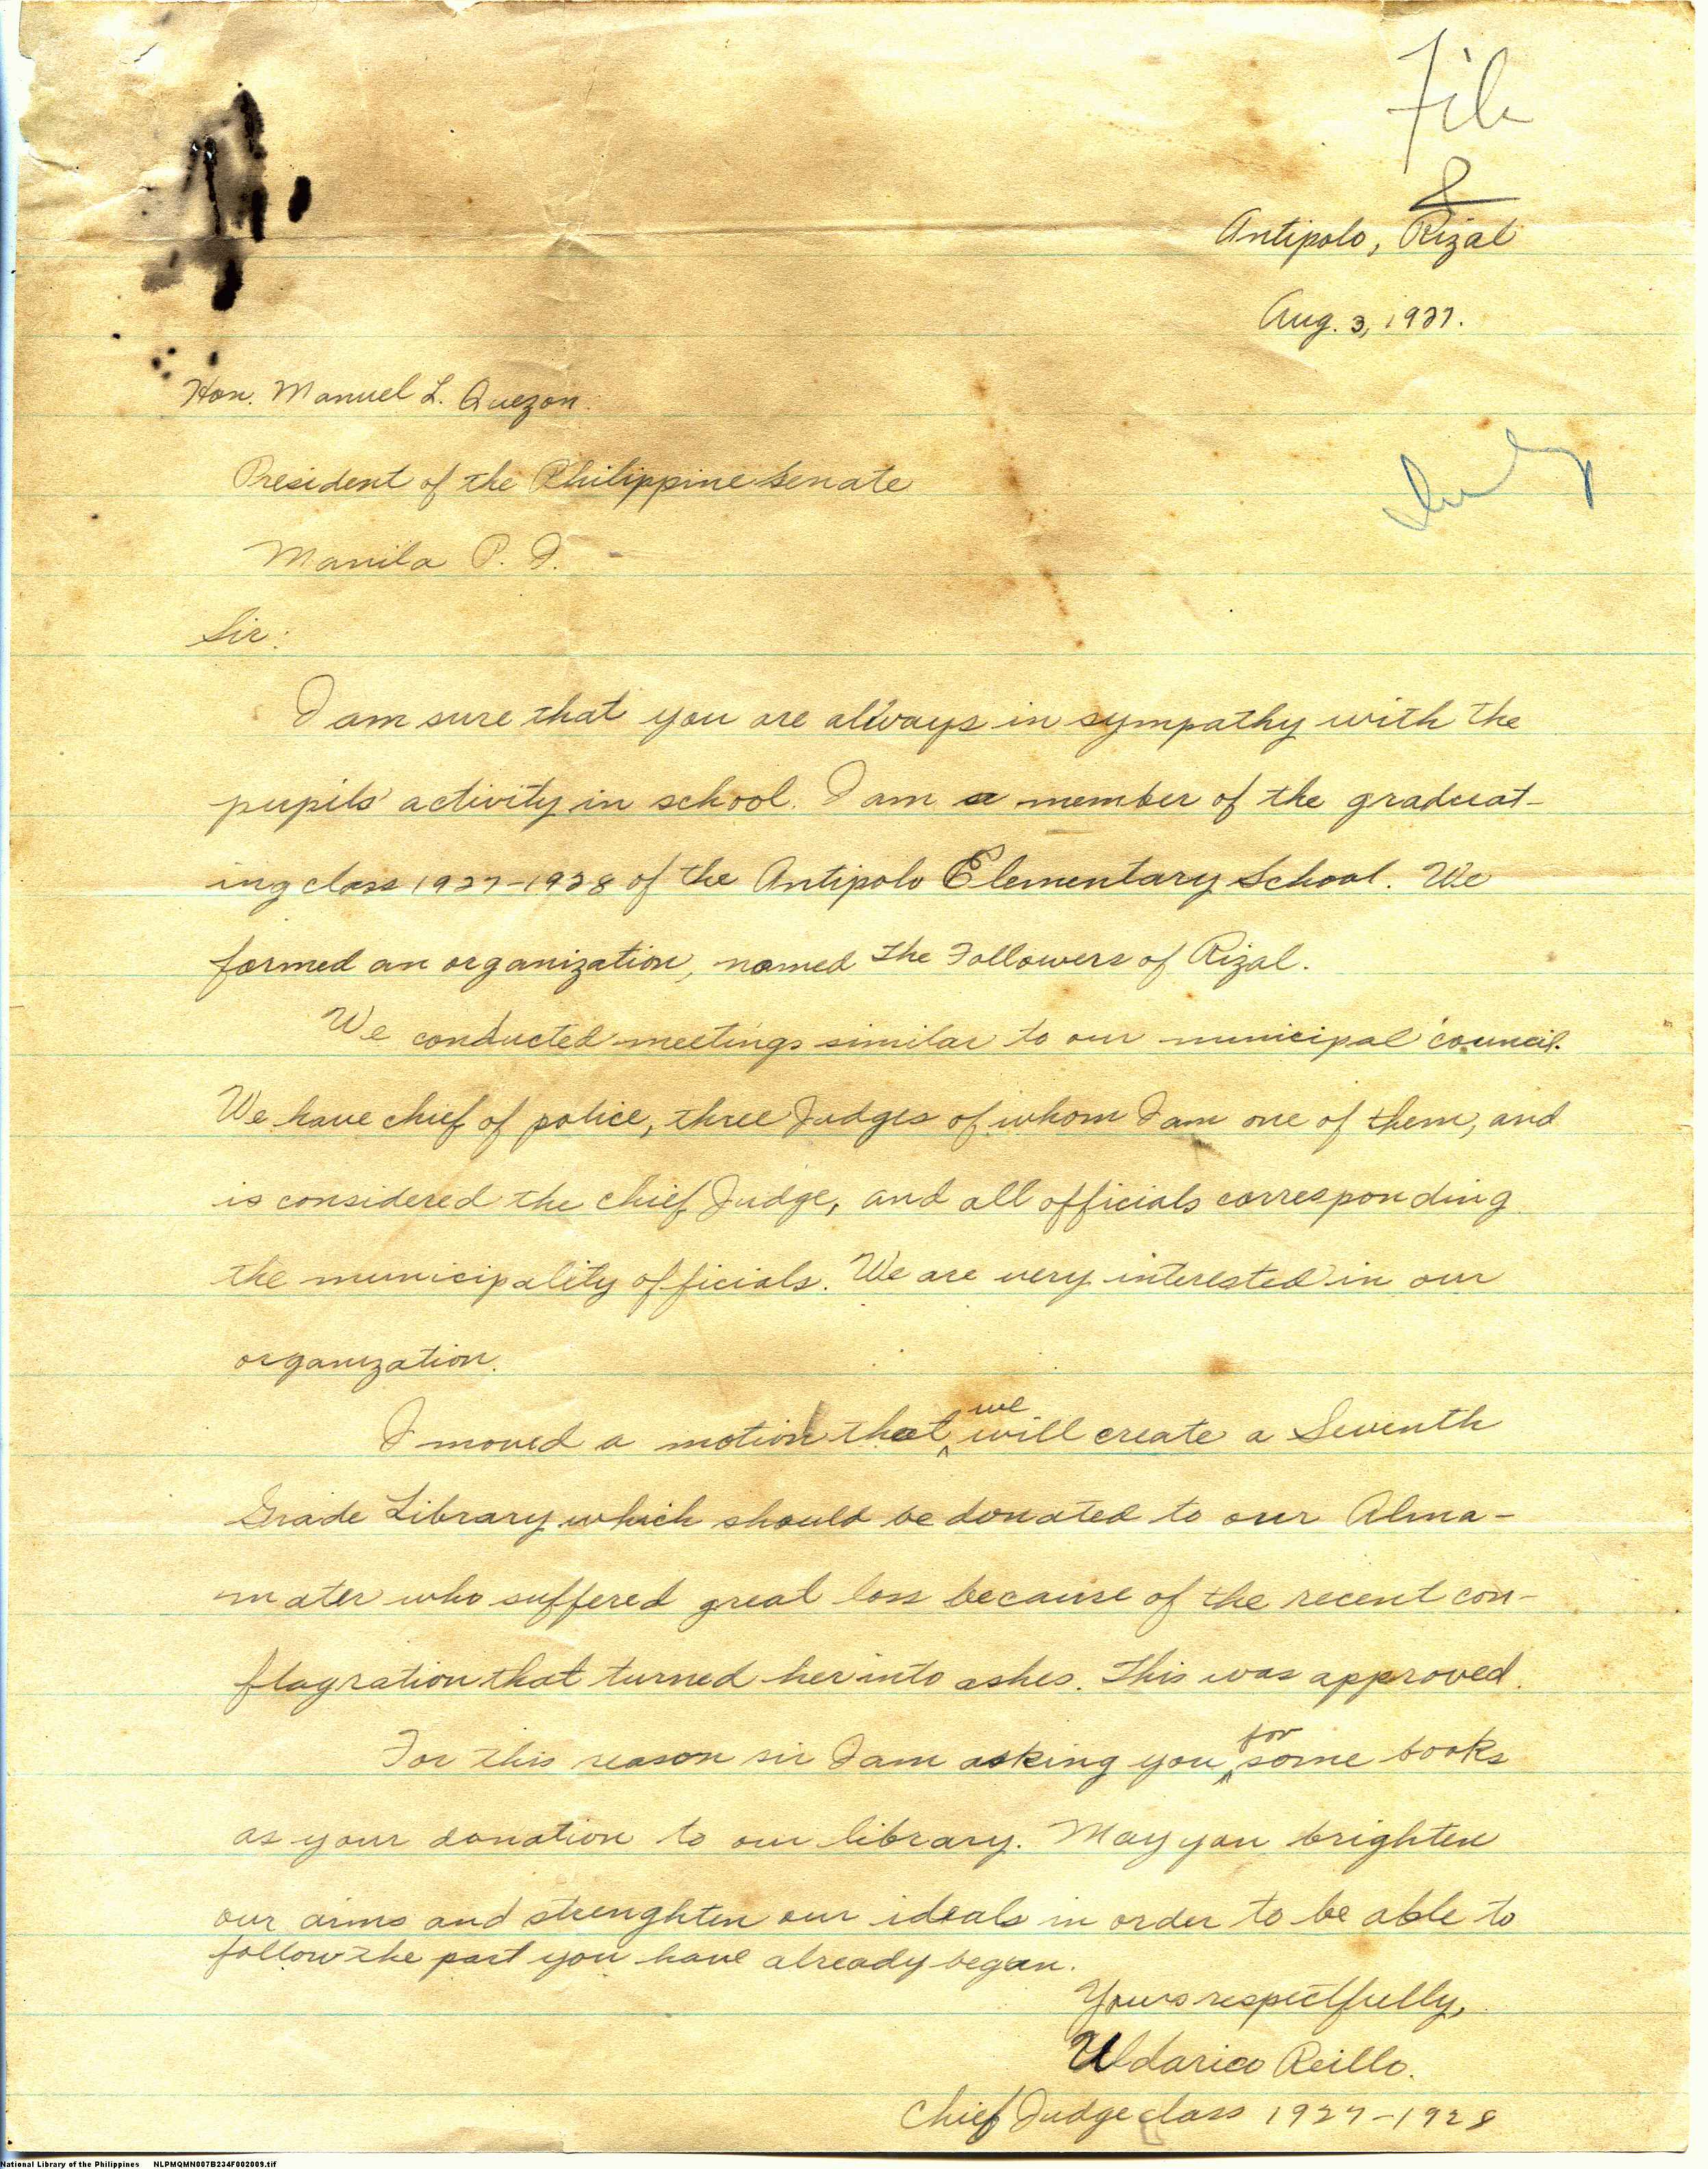 File
Antipolo, Rizal
Aug. 3, 1927.
Hon. Manuel L. Quezon
President of the Philippine Senate
Manila P. I.
Sir:
I am sure that you are always in sympathy with the
pupils' activity in school. I am a member of the graduat-
ing class 1927-1928 of the Antipolo Elementary School. We
formed an organization, named The Followers of Rizal.
We conducted meetings similar to our municipal council.
We have chief of police, three Judges of whom I am one of them, and
is considered the chief Judge, and all officials corresponding
the municipality officials. We are very interested in our
organization.
I moved a motion that we will create a Seventh
Grade Library which should be donated to our Alma-
mater who suffered great loss because of the recent con-
flagration that turned her into ashes. This was approved.
For this reason sir I am asking you for some books
as your donation to our library. May you brighten
our aims and strenghten our ideals in order to be able to
follow the part you have already began.
Yours respectfully,
Uldarico Reillo.
Chief Judge class 1927-1928
National Library of the Philippines NLPMQMN007B234F002009.tif